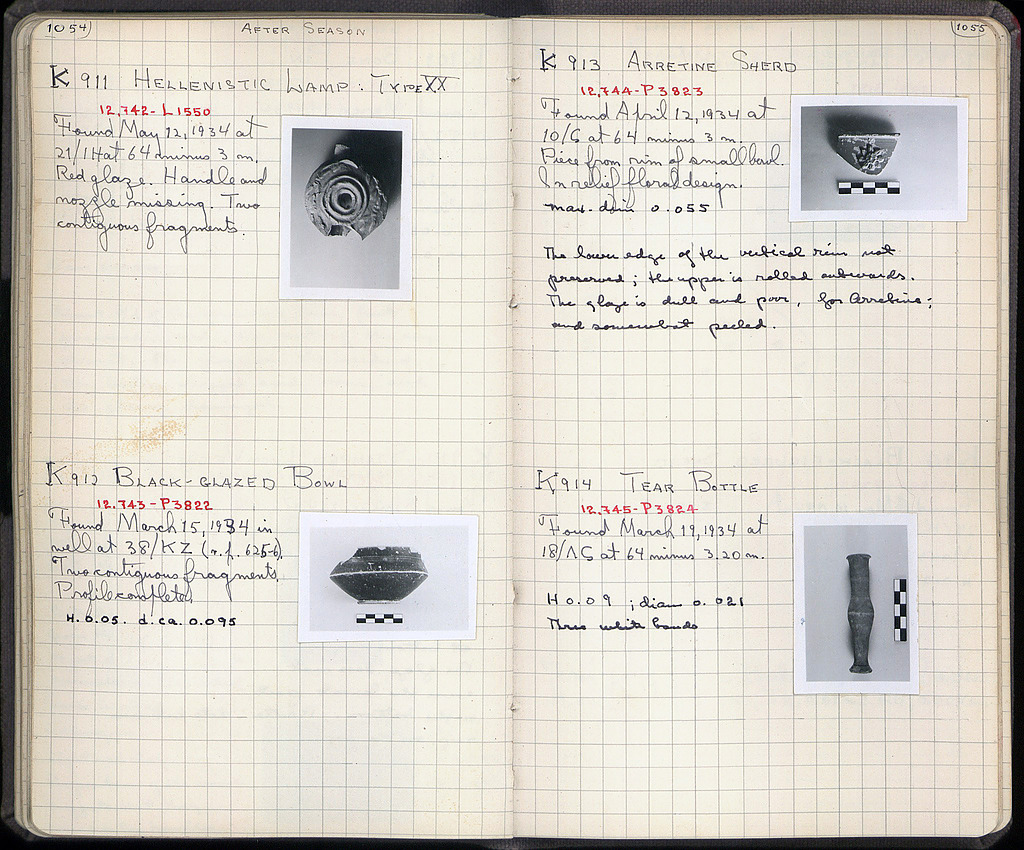 1054
AFTER SEASON
K 911 HELLENISTIC LAMP: TYPE XX
12,742 - L 1550
Found May 12, 1934 at
21/ at 64 minus 3 m.
Red glaze. Handle and
nozzle missing. Two
contiguous fragments.
K 912 BLACK-GLAZED BOWL
12,743 - P 3822
Found March 15, 1934 in
well at 38/KZ (n.p. 625-6).
Two contiguous fragments,
Profile complete.
H. 0.05. d. ca. 0.095
1055
K 913 ARRETINE SHERD
12,744 - P 3823
Found April 12, 1934 at
10/ at 64 minus 3 m.
Piece from rim of small bowl.
In relief floral design.
max. dim 0.055
The lower edge of the vertical rim not
preserved; the upper is rolled outwards.
The glaze is dull and poor, for Arretine;
and somewhat peeled.
K 914 TEAR BOTTLE
12,745 - P 3824
Found March 19, 1934 at
18/ at 64 minus 3.20 m.
H 0.09 ; diam 0.021
Three white bands